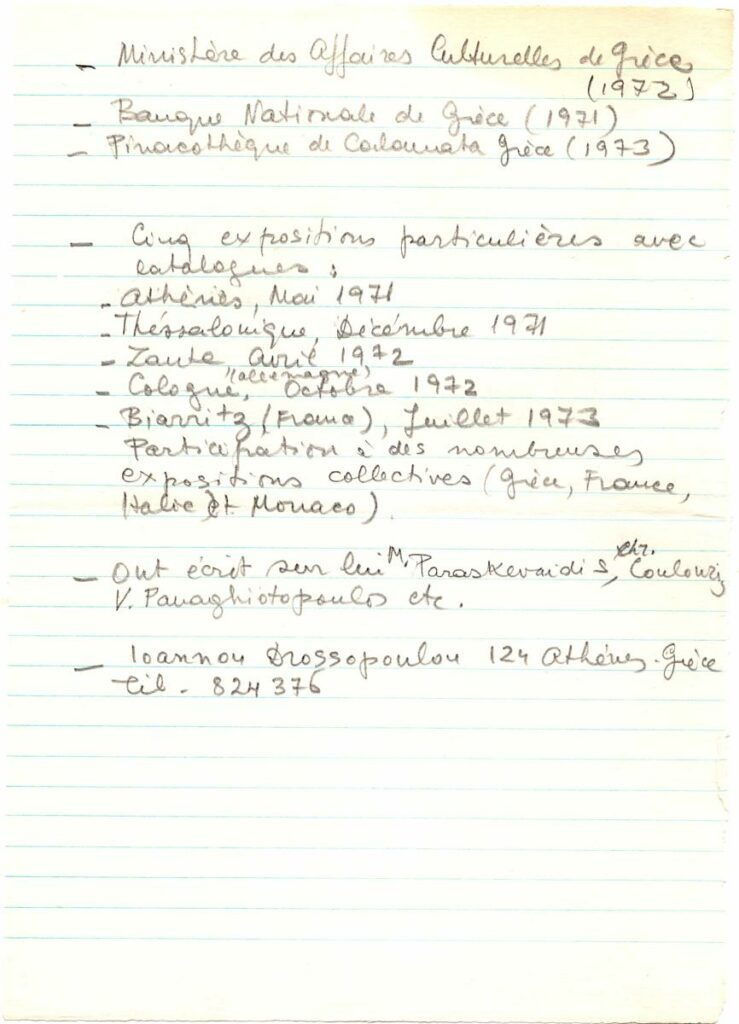 - Ministère des Affaires Culturelles de Grèce
(1972)
- Banque Nationale de Grèce (1971)
- Pinacothèque de Calamata Grèce (1973)
- Cinq expositions particulières avec
catalogues :
- Athènes, Mai 1971
- Théssalonique, Décémbre 1971
- Zante Avril 1972
- Cologne, (allemagne), Octobre 1972
- Biarritz (France), Juillet 1973
Participation à des nombreuses
expositions collectives (Grèce, France,
Italie et Monaco).
- Ont écrit sur lui M. Paraskevaidis, Chr. Coulouris,
V. Panaghiotopoulos etc.
- Ioannou Drossopoulou 124 Athénes. Grèce
Tél - 824376